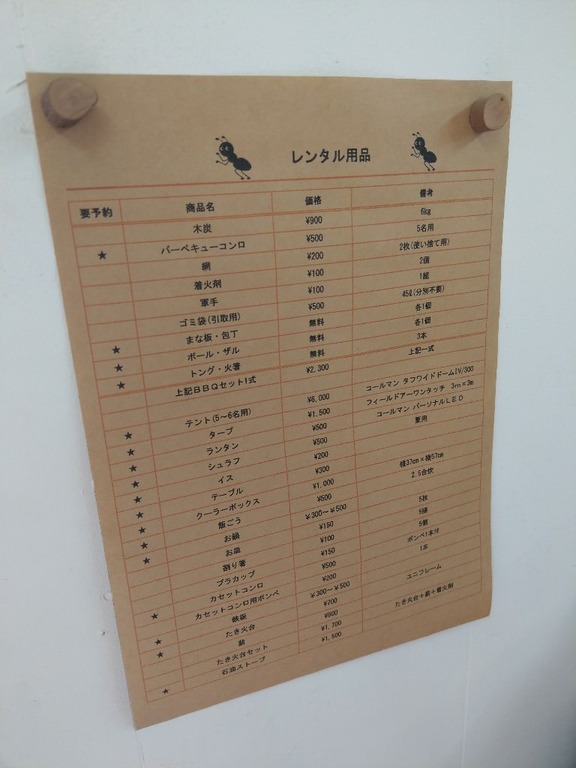 レンタル用品
要予約 商品名 価格 備考
木炭 ¥900 6kg
★ バーベキューコンロ ¥500 5名用
網 ¥200 2枚(使い捨て用)
着火剤 ¥100 2個
軍手 ¥100 1組
ゴミ袋(引取用) ¥500 45ℓ(分別不要)
★ まな板・包丁 無料 各1個
★ ボール・ザル 無料 各1個
★ トング・火箸 無料 3本
上記BBQセット1式 ¥2,300 上記一式
★ テント(5～6名用) ¥6,000 コールマン タフワイドドームIV/300
★ タープ ¥1,500 フィールドアーワンタッチ 3m×3m
★ ランタン ¥500 コールマン パーソナルLED
★ シュラフ ¥500 夏用
★ イス ¥200
★ テーブル ¥300
★ クーラーボックス ¥1,000 縦37cm×横57cm
★ 飯ごう ¥500 2.5合炊
お鍋 ¥300～¥500
お皿 ¥150 5枚
割り箸 ¥100 5膳
プラカップ ¥150 5個
★ カセットコンロ ¥500 ボンベ1本付
カセットコンロ用ボンベ ¥200 1本
★ 鉄板 ¥300～¥500
★ たき火台 ¥700 ユニフレーム
薪 ¥900
たき火台セット ¥1,700 たき火台＋薪＋着火剤
★ 石油ストーブ ¥1,500